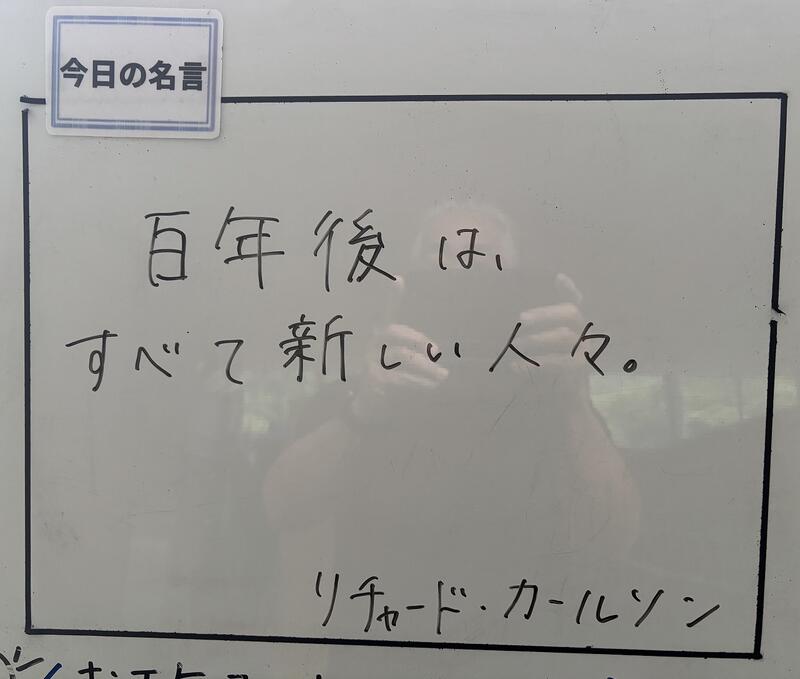 今日の名言
百年後は、
すべて新しい人々。
リチャード・カールソン